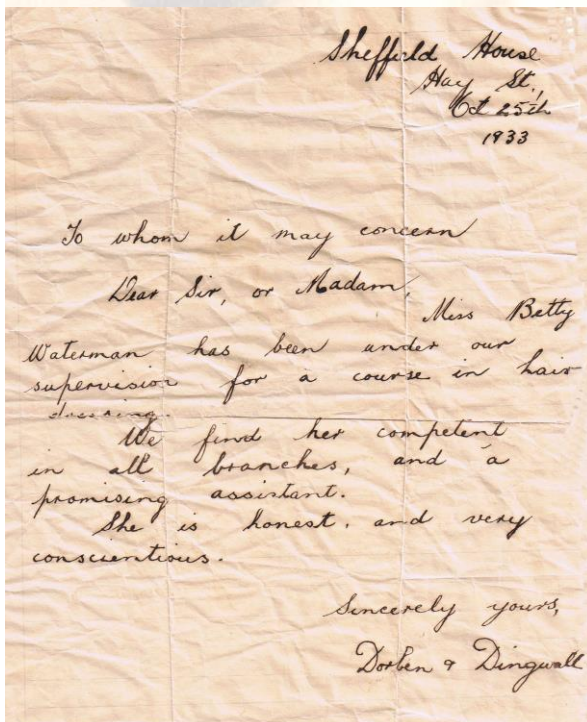 Sheffield House
Hay St.,
Oct 25th
1933
To whom it may concern
Dear Sir, or Madam,
Miss Betty
Waterman has been under our
supervision for a course in hair
dressing.
We find her competent
in all branches, and a
promising assistant.
She is honest, and very
conscientious.
Sincerely yours,
Dorben & Dingwall